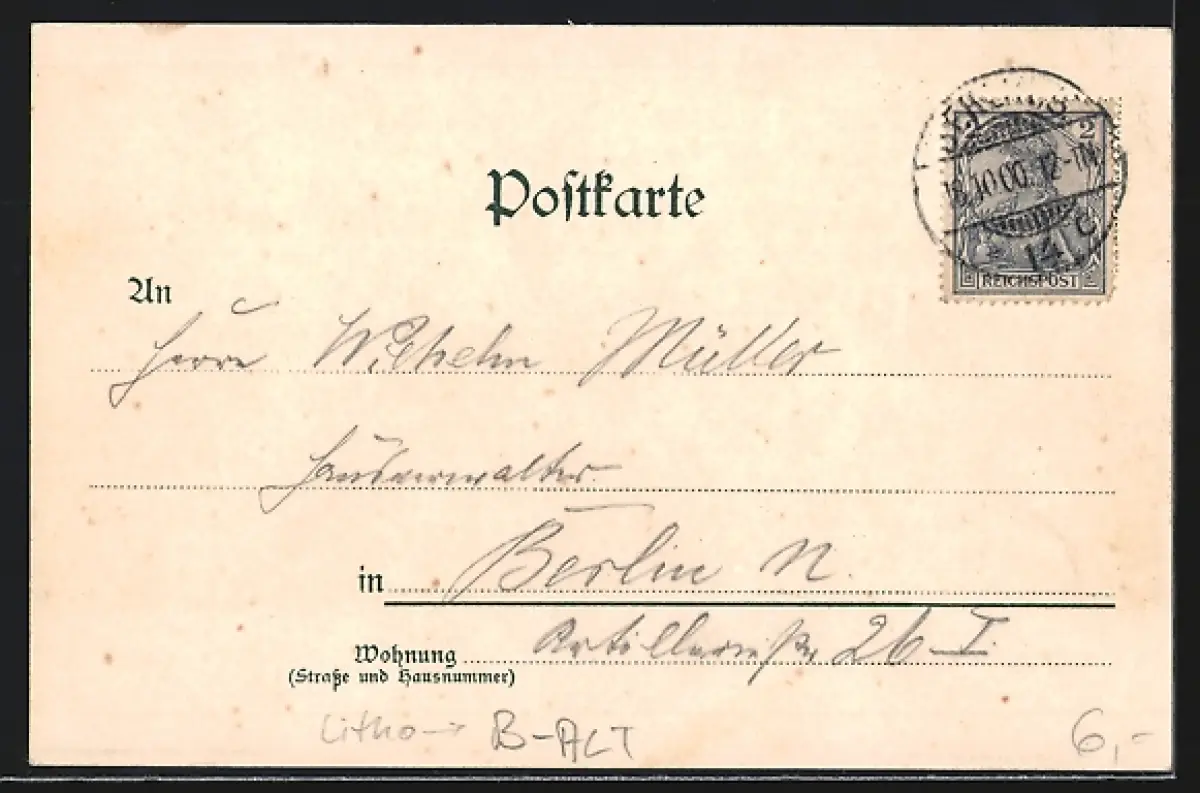 Postkarte
2
18.10.00. 12-1N.
14 C
REICHSPOST
An
Herrn Wilhelm Müller
Hausverwalter
in Berlin N.
Wohnung Artilleriestr 26 I.
(Straße und Hausnummer)
Litho B-ALT
6,-